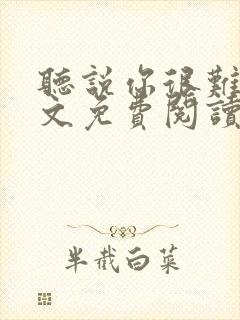 聽說你很難
文免費閱讀
半截白菜